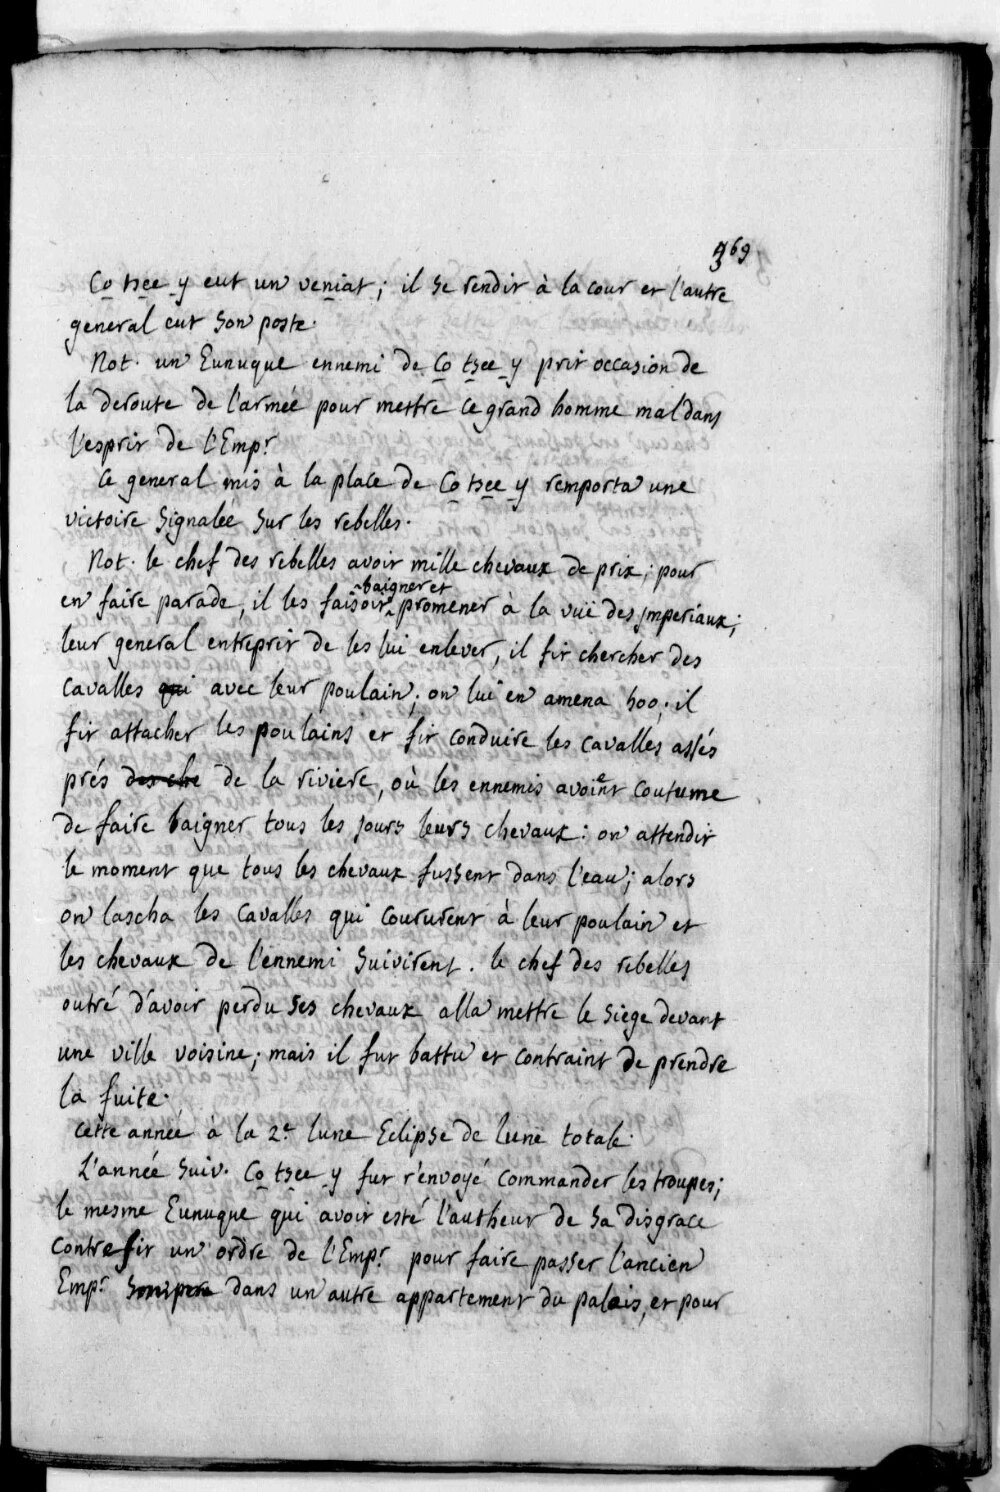 369
Co tsee y eut un veniat; il se rendit à la cour et l'autre
general eut son poste.
Not. un Eunuque ennemi de Co tsee y prit occasion de
la deroute de l'armée pour mettre ce grand homme mal dans
l'esprit de l'Empr.
Ce general mis à la place de Co tsee y remporta une
victoire signalée sur les rebelles.
Not. le chef des rebelles avoit mille chevaux de prix; pour
en faire parade, il les faisoit baigner et promener à la vuë des jmperiaux;
leur general entreprit de les lui enlever, il fit chercher des
cavalles qui avec leur poulain; on lui en amena 500; il
fit attacher les poulains et fit conduire les cavalles assés
prés des che de la riviere, où les ennemis avoient coutume
de faire baigner tous les jours leurs chevaux: on attendit
le moment que tous les chevaux fussent dans l'eau; alors
on lascha les cavalles qui coururent à leur poulain et
les chevaux de l'ennemi suivirent. le chef des rebelles
outré d'avoir perdu ses chevaux alla mettre le siege devant
une ville voisine; mais il fut battu et contraint de prendre
la fuite.
cette année à la 2e lune Eclipse de lune totale.
L'année suiv. Co tsee y fut r'envoyé commander les troupes;
le mesme Eunuque qui avoit esté l'autheur de sa disgrace
contrefit un ordre de l'Empr. pour faire passer l'ancien
Empr. son pere dans un autre appartement du palais, et pour